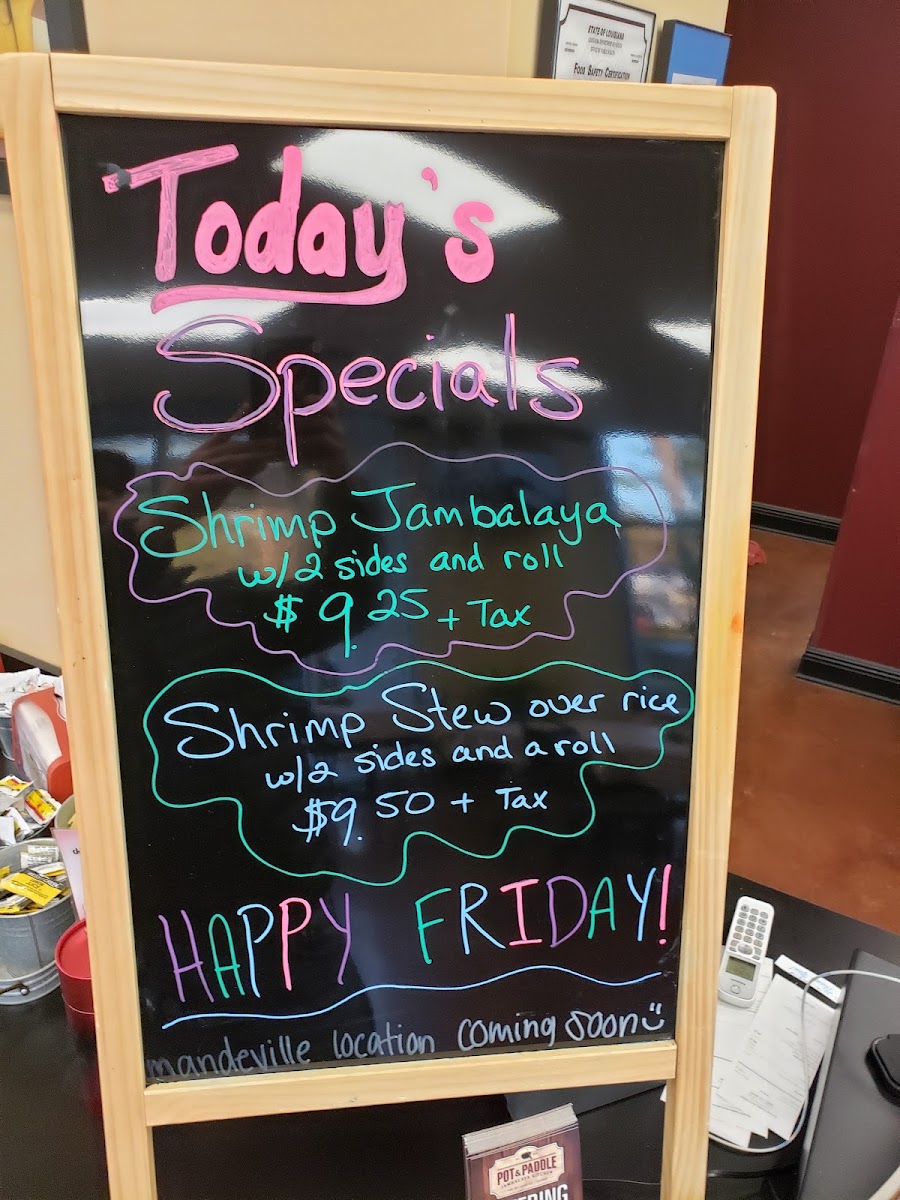 STATE OF LOUISIANA
FOOD SAFETY CERTIFICATION
Today's
Specials
Shrimp Jambalaya
w/2 sides and roll
$9.25 + Tax
Shrimp Stew over rice
w/2 sides and a roll
$9.50 + Tax
HAPPY FRIDAY!
mandeville location coming soon
POT & PADDLE
JAMBALAYA KITCHEN